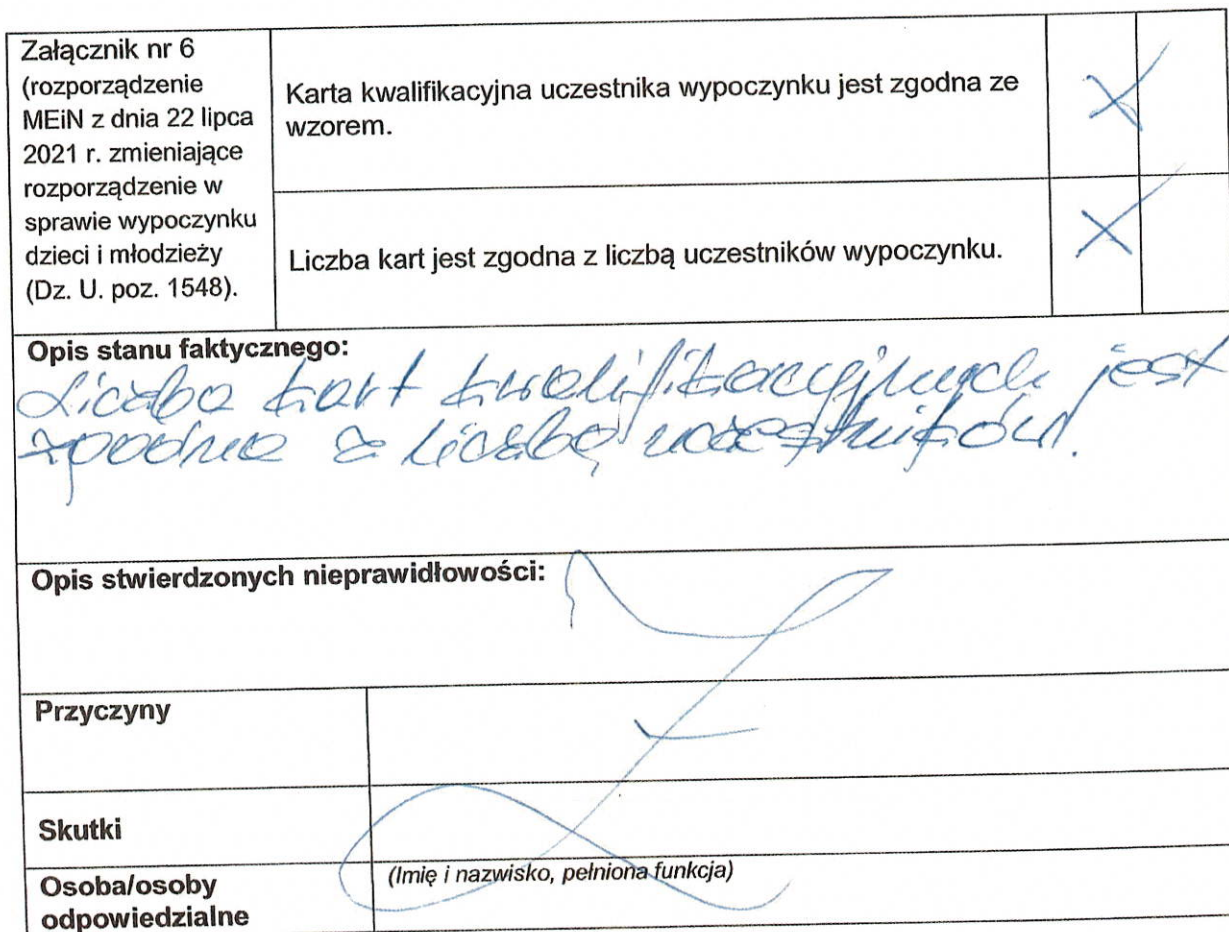 Załącznik nr 6
(rozporządzenie
MEiN z dnia 22 lipca
2021 r. zmieniające
rozporządzenie w
sprawie wypoczynku
dzieci i młodzieży
(Dz. U. poz. 1548).
Karta kwalifikacyjna uczestnika wypoczynku jest zgodna ze
wzorem.
X
Liczba kart jest zgodna z liczbą uczestników wypoczynku.
X
Opis stanu faktycznego:
Liczba kart kwalifikacyjnych jest
zgodna z liczbą uczestników.
Opis stwierdzonych nieprawidłowości:
Przyczyny
Skutki
Osoba/osoby
odpowiedzialne
(Imię i nazwisko, pełniona funkcja)